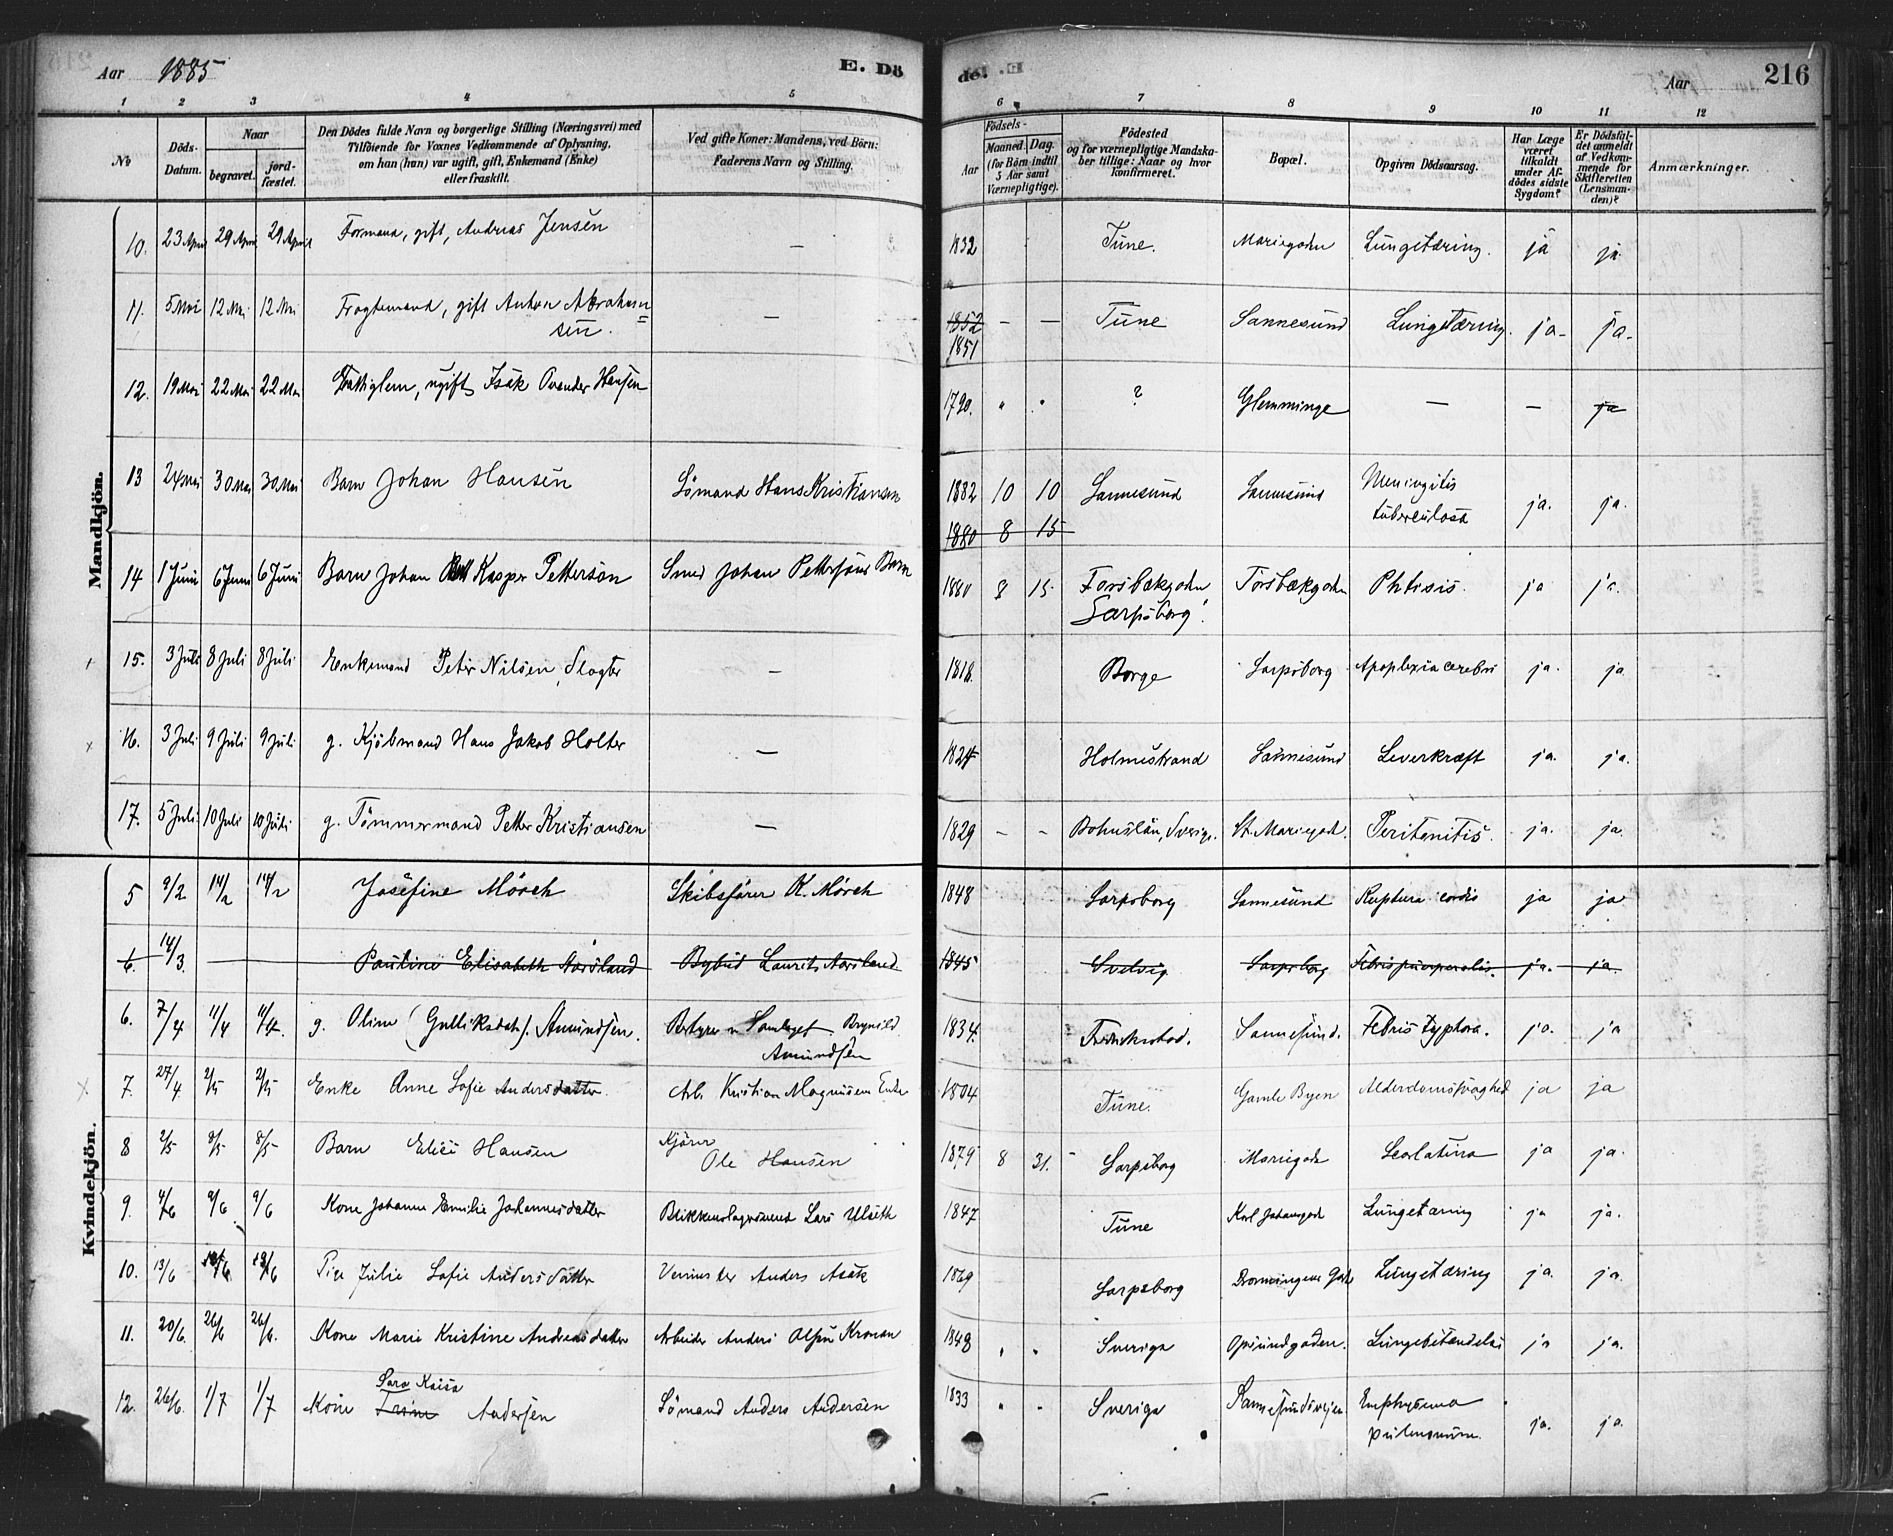 Aar 1885 E. Dö
de. Aar 216
1 2 3 4 5 6 7 8 9 10 11 12
No
Döds-Datum.
Naar
begravet.
jord-fæstet.
Den Dödes fulde Navn og borgerlige Stilling (Næringsvei) med
Tilföiende for Voxnes Vedkommende af Oplysning,
om han (hun) var ugift, gift, Enkemand (Enke)
eller fraskilt.
Ved gifte Koner: Mandens, ved Börn:
Faderens Navn og Stilling.
Födsels-
Aar
Maaned. Dag.
(for Börn indtil
5 Aar samt
Værnepligtige).
Födested
og for værnepligtige Mandska-
ber tillige: Naar og hvor
konfirmeret.
Bopæl.
Opgiven Dödsaarsag.
Har Læge
været
tilkaldt
under Af-
dödes sidste
Sygdom?
Er Dödsfal-
det anmeldt
af Vedkom-
mende for
Skifteretten
(Lensman-
den)?
Anmærkninger.
Mandkjön.
10. 23 April 29 April 29 April Formand, gift, Andreas Jensen — 1832 Tune. Mariegaden Lungetæring. ja ja
11. 5 Mai 12 Mai 12 Mai Fragtemand, gift Anton Abraham=
sen. — 1852 — — Tune Sannesund Lungetæring. ja- ja-
1851
12. 19 Mai 22 Mai 22 Mai Fattiglem, ugift Isak Hansen 1790. " " ? Glemminge — — ja
13 24 Mai 30 Mai 30 Mai Barn Johan Hansen Sömand Hans Kristiansen 1882 10 10 Sannesund Sannesund Meningitis
tuberculosa ja. ja.
1880 8 15
14 1 Juni 6 Juni 6 Juni Barn Johan Kasper Petterson Smed Johan Pettersons Barn 1880 8 15 Torsbækgaden
Sarpsborg. Torsbækgaden Phtisis. ja ja.
15. 3 Juli 8 Juli 8 Juli Enkemand Peter Nilsen, Slagter — 1818. Borge Sarpsborg Apoplexia cerebri ja. ja
x 16. 3 Juli 9 Juli 9 Juli g. Kjöbmand Hans Jakob Holter — 1824 Holmestrand Sannesund Leverkræft ja. ja.
17. 5 Juli 10 Juli 10 Juli g. Tömmermand Petter Kristiansen — 1829 — — Bohuslän, Sverige. St. Mariegad. Peritonitis. ja. ja.
Kvindekjön.
5 9/2 14/2 14/2 Josefine Mörch Skibsförer K. Mörch 1848 Sarpsborg Sannesund Ruptura cordis ja ja
6. 14/3. Pauline Elisabeth Aarsland Bybud Laurits Aarsland 1845 Svelvig Sarpsborg Febris puerperalis. ja. ja.
6. 7/4 11/4 11/4. g. Oline (Gulliksdatr). Amundsen. Bestyrer v Samlaget Brynild
Amundsen 1834. Fredrikstad. Sannesund. Febris typhosa. ja. ja
x 7. 27/4. 2/5 2/5 Enke Anne Sofie Andersdatter Arb. Kristian Magnusens Enke 1804 Tune. Gamle Byen Alderdomssvaghed ja ja
8 2/5 8/5 8/5 Barn Elise Hansen Kjörer
Ole Hansen 1879 8 31. Sarpsborg Mariegade Scarlatina ja ja.
9. 4/6 9/6 9/6 Kone Johanne Emilie Johannesdatter Blikkenslagersvend Lars Ulseth 1847 Tune Karl Johansgade Lungetæring ja ja.
10. 13/6 Pige Julie Sofie Andersdatter Anders Asak 1869 Sarpsborg Dronningens Gade Lungetæring ja. ja.
11. 20/6. 26/6 26/6. Kone Marie Kristine Andreasdatter Arbeider Anders Olsen Kronan 1848 " " Sverige Opsundgaden. Lungebetændelse ja ja.
12. 26/6. 1/7 1/7 Kone Sara Kaisa
Trine Andersen Sömand Anders Andersen 1833 " " Sverige Sannesundsveien Emphysema
pulmonum. ja. ja.